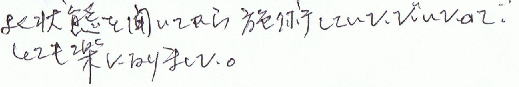 よく状態を聞いてから施術していただいたので
とても楽になりました。